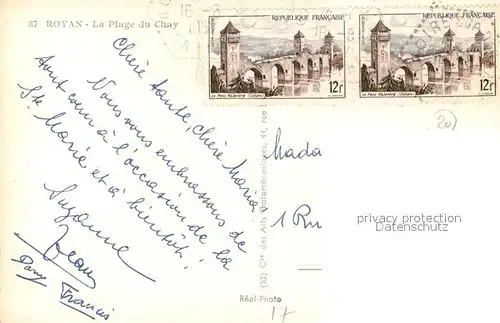 37 ROYAN - La Plage du Chay
REPUBLIQUE FRANÇAISE
12F
Le Pont Valentré (Cahors)
REPUBLIQUE FRANÇAISE
12F
Le Pont Valentré (Cahors)
Chère tante, chère Maria
Nous vous embrassons de
tout cœur à l'occasion de la
Ste Marie et à bientôt!
Suzanne
Jean
Dany Francis
(53) Cie des Arts Photomécaniques, 44, rue
Réal-Photo
20
Mada
1 Ru
17
privacy protection
PROTECTION DES DONNÉES